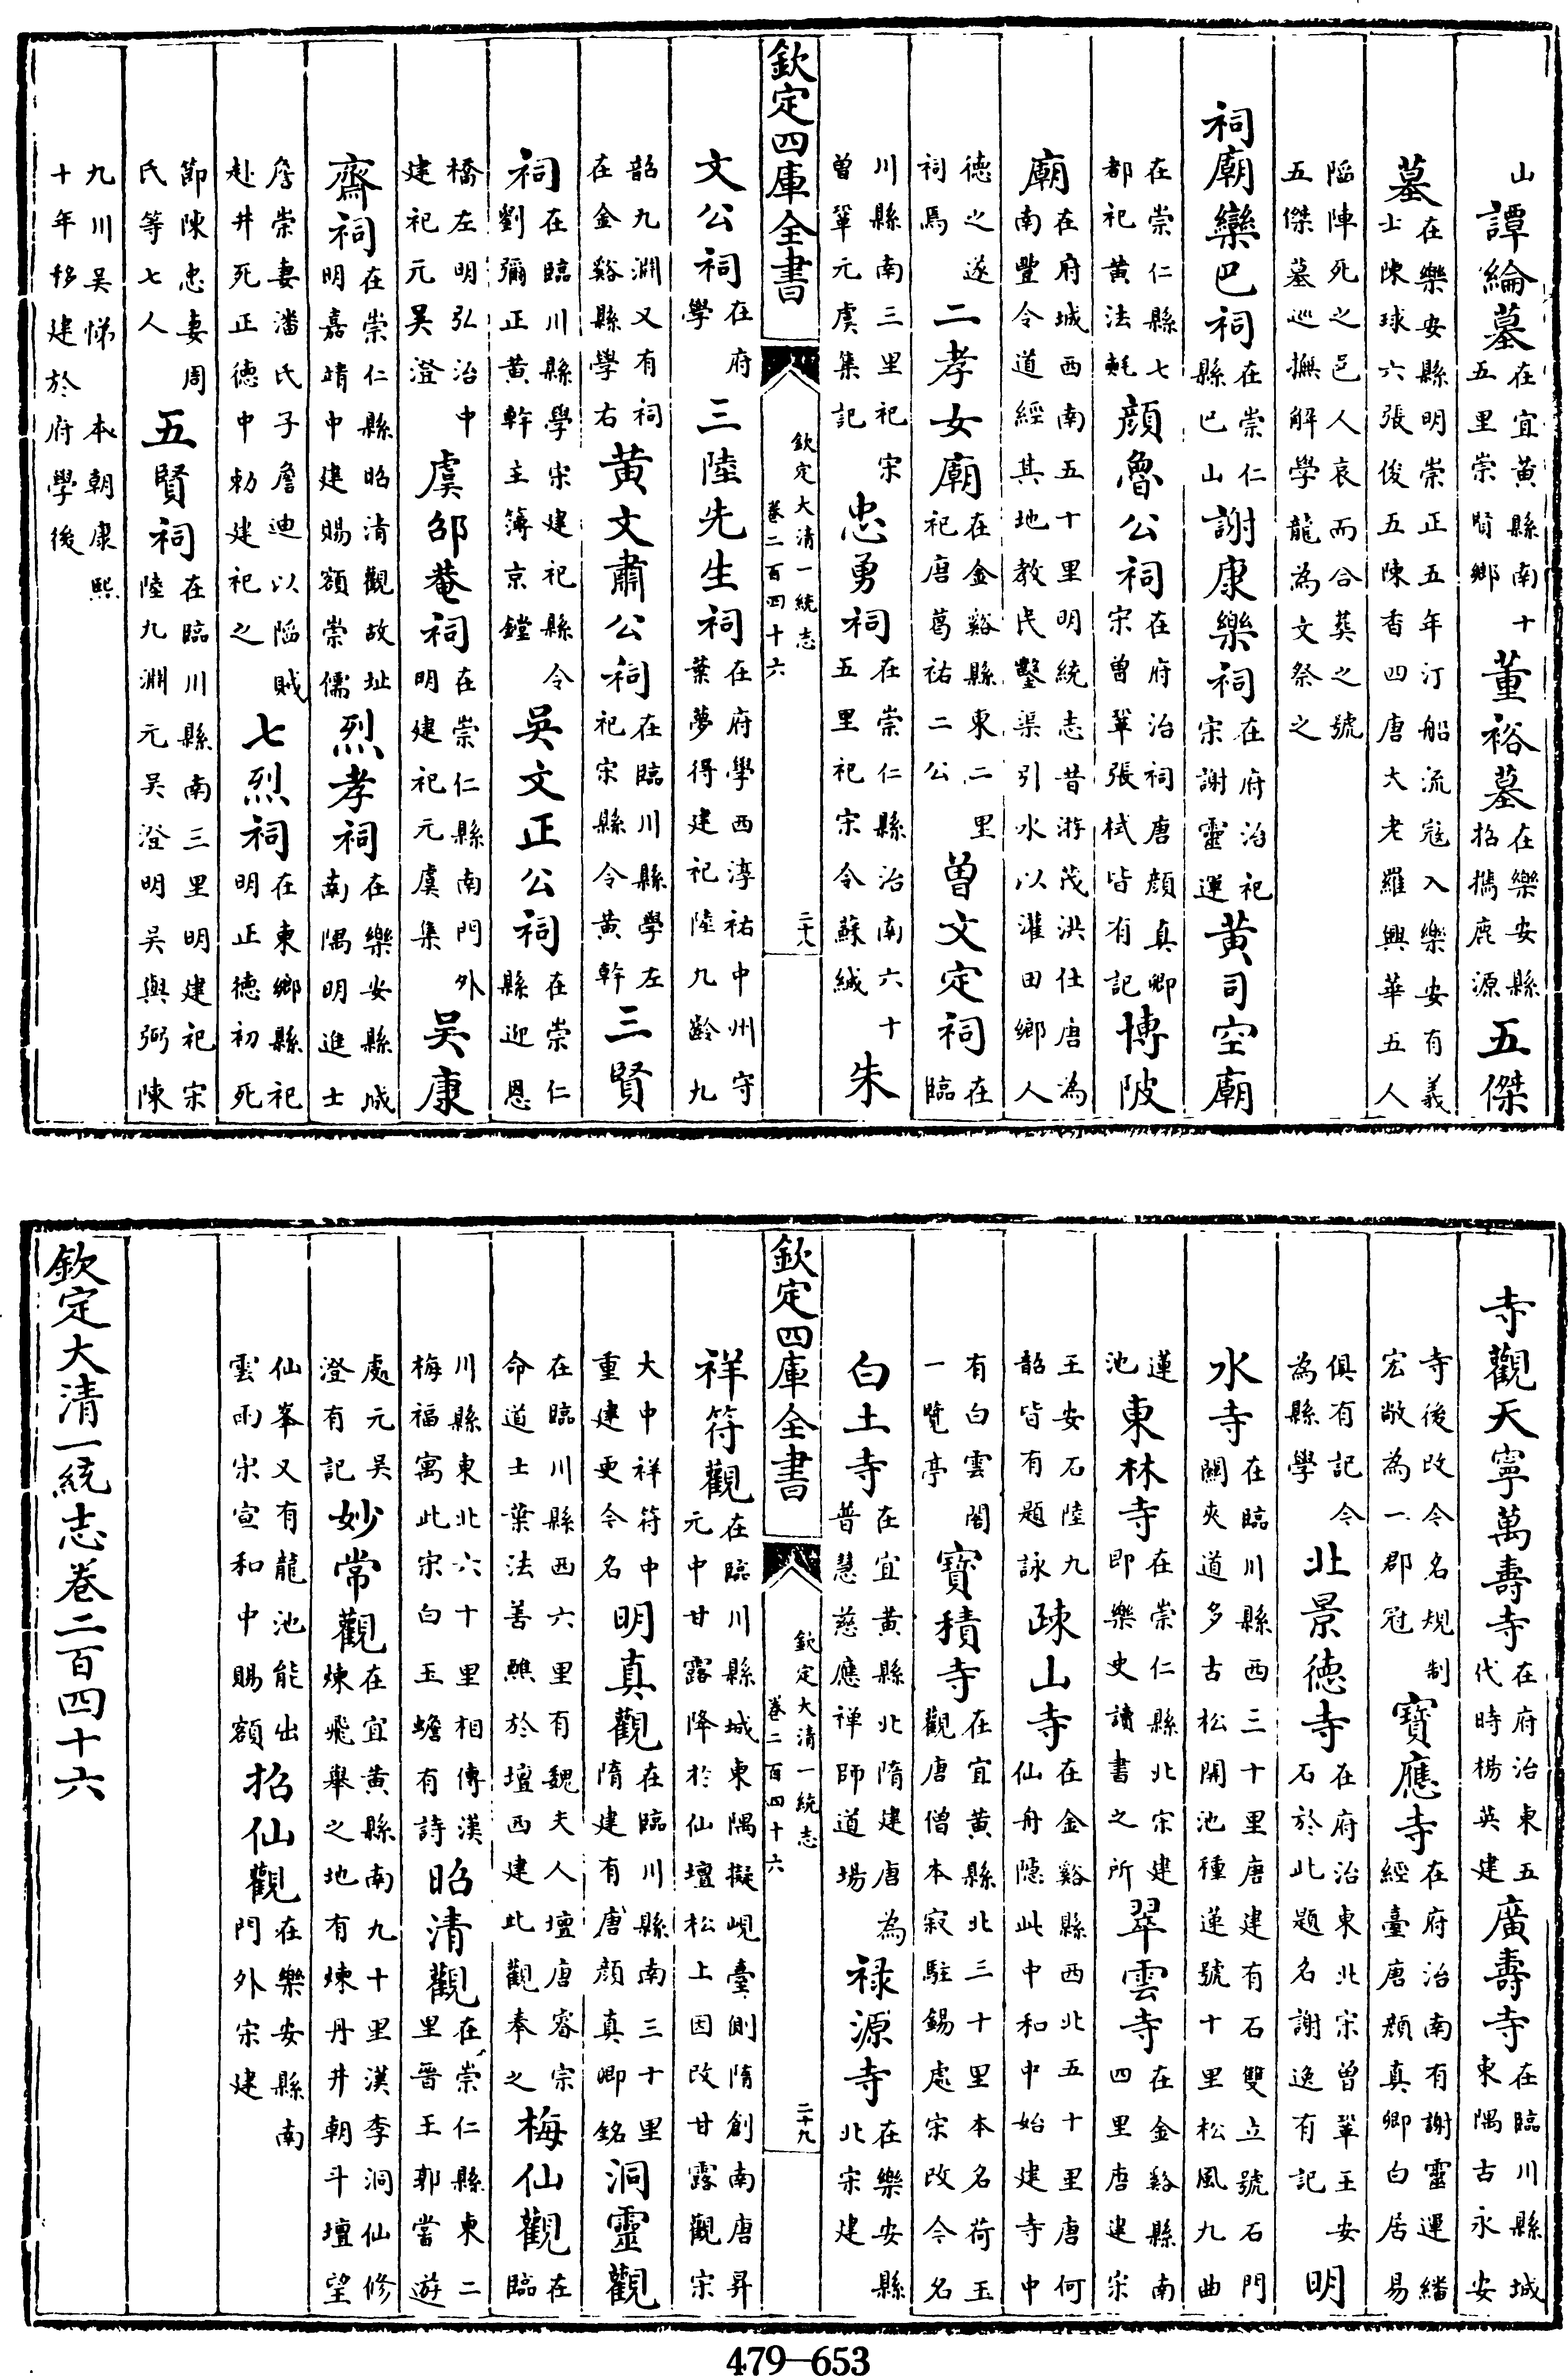 山譚綸墓在宜黃縣南十五里崇賢鄉董裕墓在樂安縣招攜鹿源五傑
墓在樂安縣明崇正五年汀船流寇入樂安有義士陳球六張俊五陳香四唐大老羅興華五人
陷陣死之邑人哀而合葬之號五傑墓巡撫解學龍為文祭之
祠廟欒巴祠在崇仁縣巴山謝康樂祠在府治祀宋謝靈運黃司空廟
在崇仁縣七都祀黃法𣰰顏魯公祠在府治祠唐顏真卿宋曾鞏張栻皆有記博陂
廟在府城西南五十里明統志昔游茂洪仕唐為南豐令道經其地教民鑿渠引水以灌田鄉人
德之遂祠焉二孝女廟在金谿縣東二里祀唐葛祐二公曾文定祠在臨
川縣南三里祀宋曾鞏元虞集記忠勇祠在崇仁縣治南六十五里祀宋令蘇緘朱
欽定四庫全書
欽定大清一統志
卷二百四十六
二十八
文公祠在府學三陸先生祠在府學西淳祐中州守葉夢得建祀陸九齡九
韶九淵又有祠在金谿縣學右黃文肅公祠在臨川縣學左祀宋縣令黃幹三賢
祠在臨川縣學宋建祀縣令劉彌正黃幹主簿京鏜吳文正公祠在崇仁縣迎恩
橋左明弘治中建祀元吳澄虞邵菴祠在崇仁縣南門外明建祀元虞集吳康
齋祠在崇仁縣昭清觀故址明嘉靖中建賜額崇儒烈孝祠在樂安縣城南隅明進士
詹崇妻潘氏子詹迪以陷賊赴井死正德中勅建祀之七烈祠在東鄉縣祀明正德初死
節陳忠妻周氏等七人五賢祠在臨川縣南三里明建祀宋陸九淵元吳澄明吳與弼陳
九川吳悌本朝康熙十年移建於府學後
寺觀天寧萬壽寺在府治東五代時楊英建廣壽寺在臨川縣城東隅古永安
寺後改今名規制宏敞為一郡冠寶應寺在府治南有謝靈運繙經臺唐顏真卿白居易
俱有記今為縣學北景德寺在府治東北宋曾鞏王安石於此題名謝逸有記明
水寺在臨川縣西三十里唐建有石雙立號石門關夾道多古松開池種蓮號十里松風九曲
蓮池東林寺在崇仁縣北宋建即樂史讀書之所翠雲寺在金谿縣南四里唐建宋
王安石陸九韶皆有題詠疎山寺在金谿縣西北五十里唐何仙舟隱此中和中始建寺中
有白雲閣一覽亭寶積寺在宜黃縣北三十里本名荷玉觀唐僧本寂駐錫處宋改今名
白土寺在宜黃縣北隋建唐為普慧慈應禪師道場祿源寺在樂安縣北宋建
欽定四庫全書
欽定大清一統志
卷二百四十六
二十九
祥符觀在臨川縣城東隅擬峴臺側隋創南唐昇元中甘露降於仙壇松上因改甘露觀宋
大中祥符中重建更今名明真觀在臨川縣南三十里隋建有唐顏真卿銘洞靈觀
在臨川縣西六里有魏夫人壇唐睿宗命道士葉法善醮於壇西建此觀奉之梅仙觀在臨
川縣東北六十里相傳漢梅福寓此宋白玉蟾有詩昭清觀在崇仁縣東二里晉王郭嘗遊
處元吳澄有記妙常觀在宜黃縣南九十里漢李洞仙修煉飛舉之地有煉丹井朝斗壇望
仙峯又有龍池能出雲雨宋宣和中賜額招仙觀在樂安縣南門外宋建
欽定大清一統志卷二百四十六
479—653